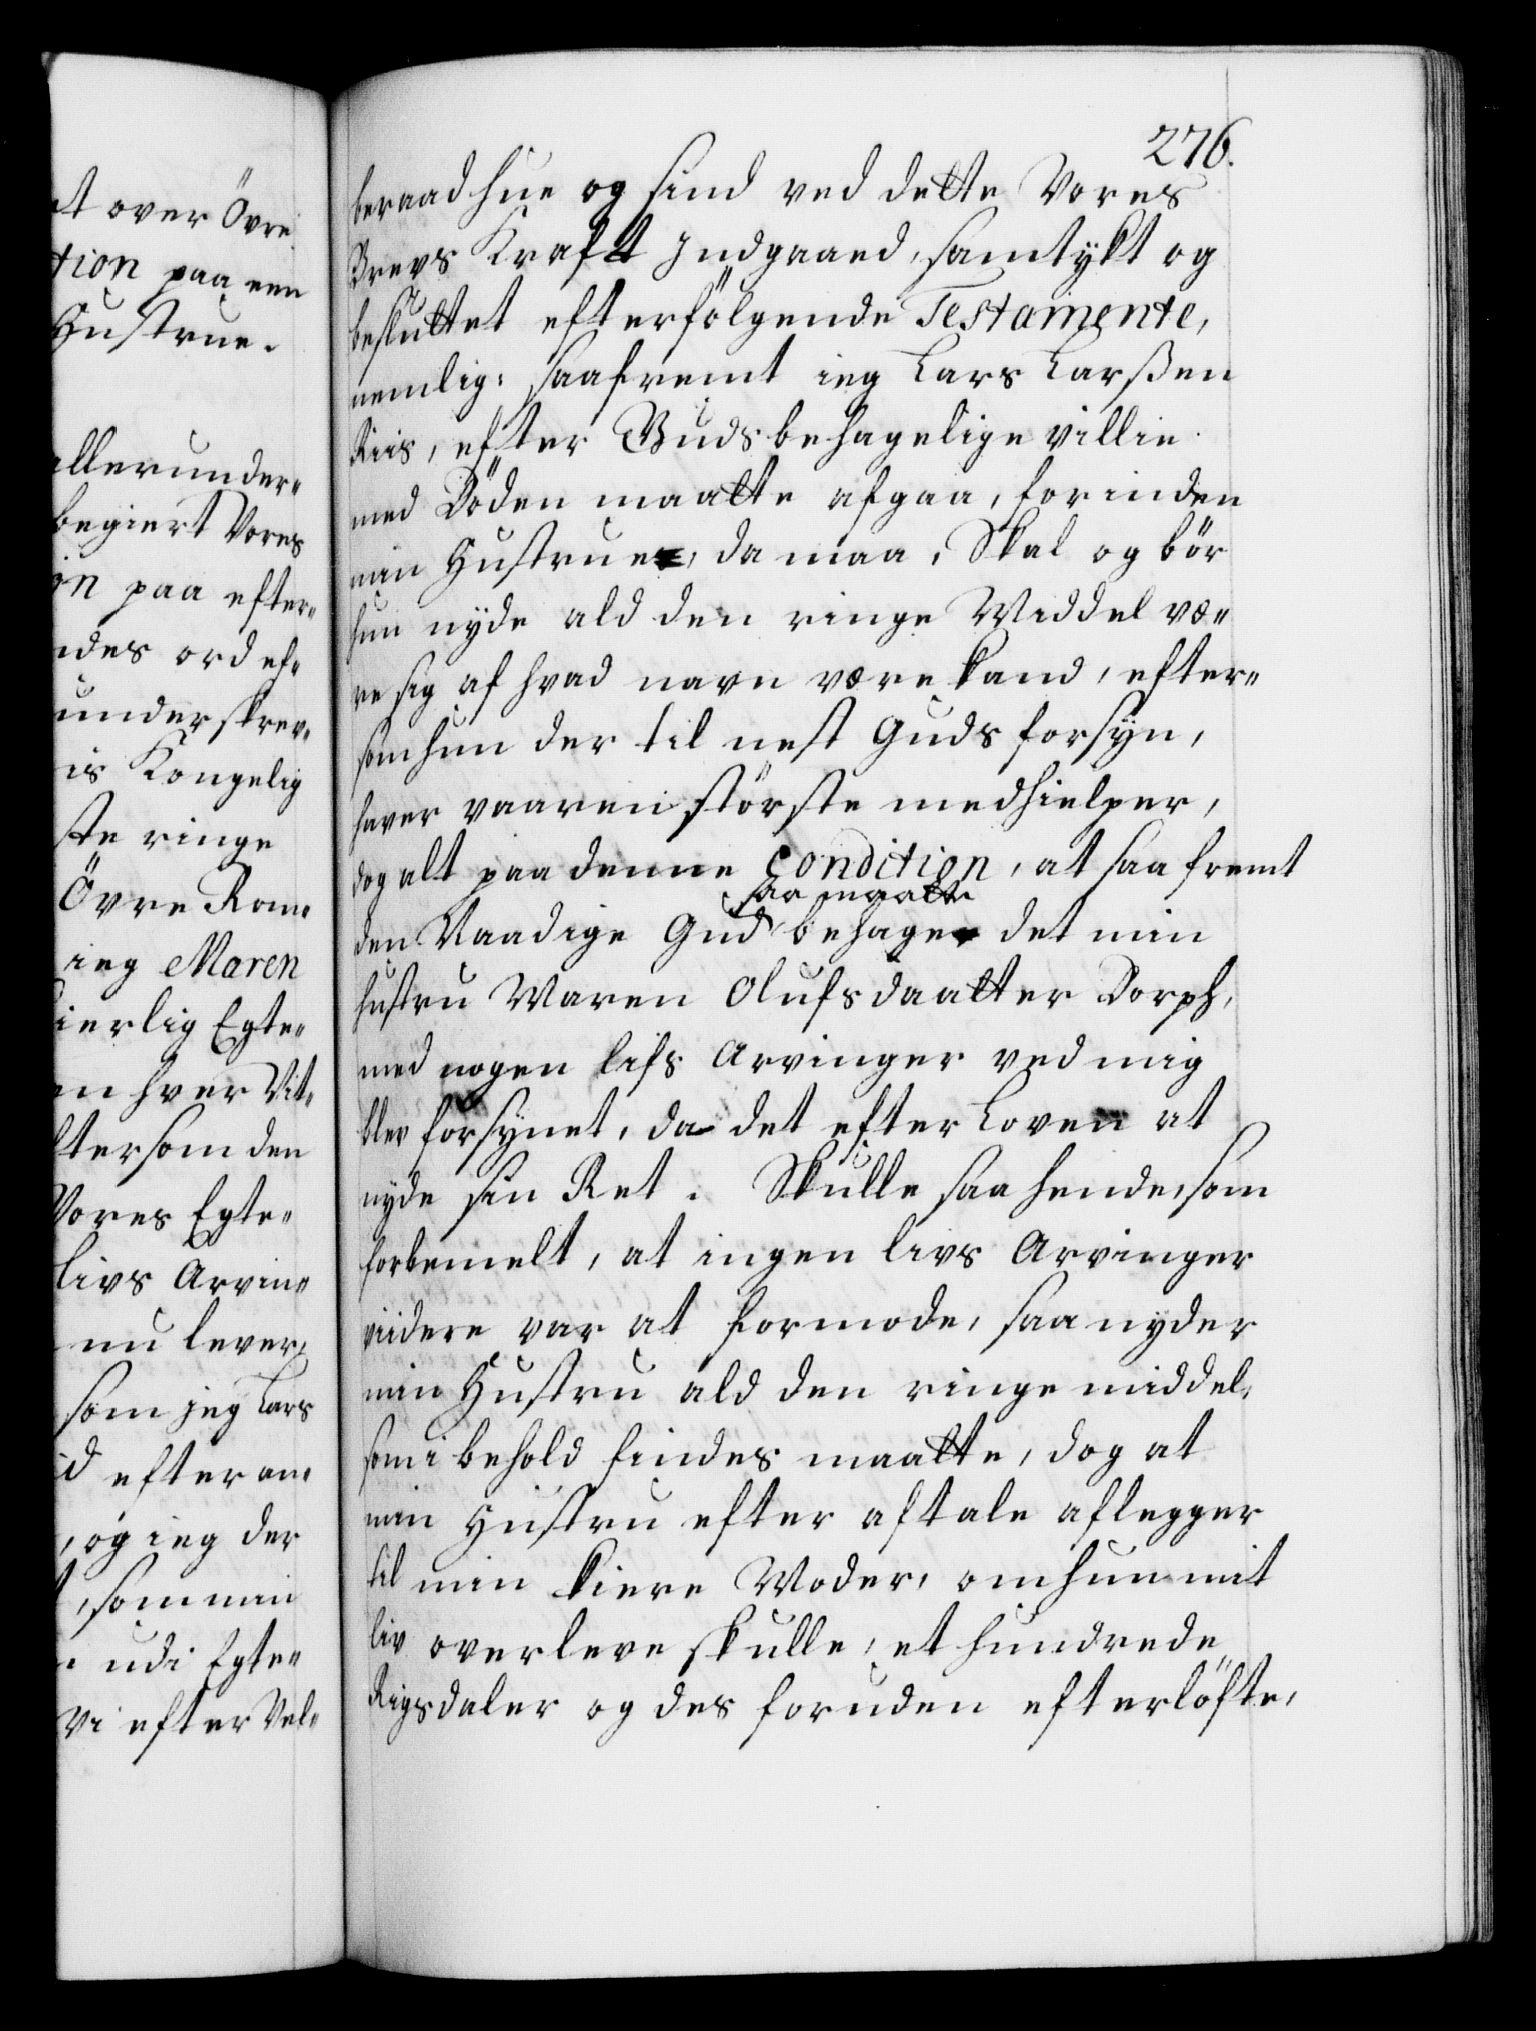 t over Övre
tion paa een
Hustrue.
allerunder=
begiert Vores
on paa efter=
ndes ord ef=
underskrev=
is Kongelig
ste ringe
Övre Rom=
ieg Maren
kierlig Egte=
en hver Vit=
ftersom den
Vores Egte=
livs Arvin=
nu lever,
som jeg Lars
id efter an=
, og ieg der
t, som min
e udi Egte=
Vi efter Vel=
276.
beraad hue og sind ved dette Vores
Brevs Kraft Indgaaed, samtykt og
besluttet efterfölgende Testamente,
nemlig: saafremt ieg Lars Larßen
Riis, efter Guds behagelige villie
med Döden maatte afgaa, forinden
min Hustrue, da maa, Skal og bör
hun nyde ald den ringe Middel væ=
re sig af hvad navn være kand, efter=
som hun der til nest Guds forsyn,
haver vaaren störste medhielper,
dog alt paa denne Condition, at saa fremt
saa maatte
den Naadige Gud behage det min
hustru Maren Olufsdaatter Dorph,
med nogen lifs Arvinger ved mig
blev forsynet, da det efter Loven at
nyde sin Ret. Skulle saa hende, som
forbemelt, at ingen livs Arvinger
viidere var at formode, saa nyder
min Hustru ald den ringe middel,
som i behold findes maatte, dog at
min Hustru efter aftale aflegger
til min kiere Moder, om hun mit
liv overleve skulle, et hundrede
Rigsdaler og des foruden efterlöfte,